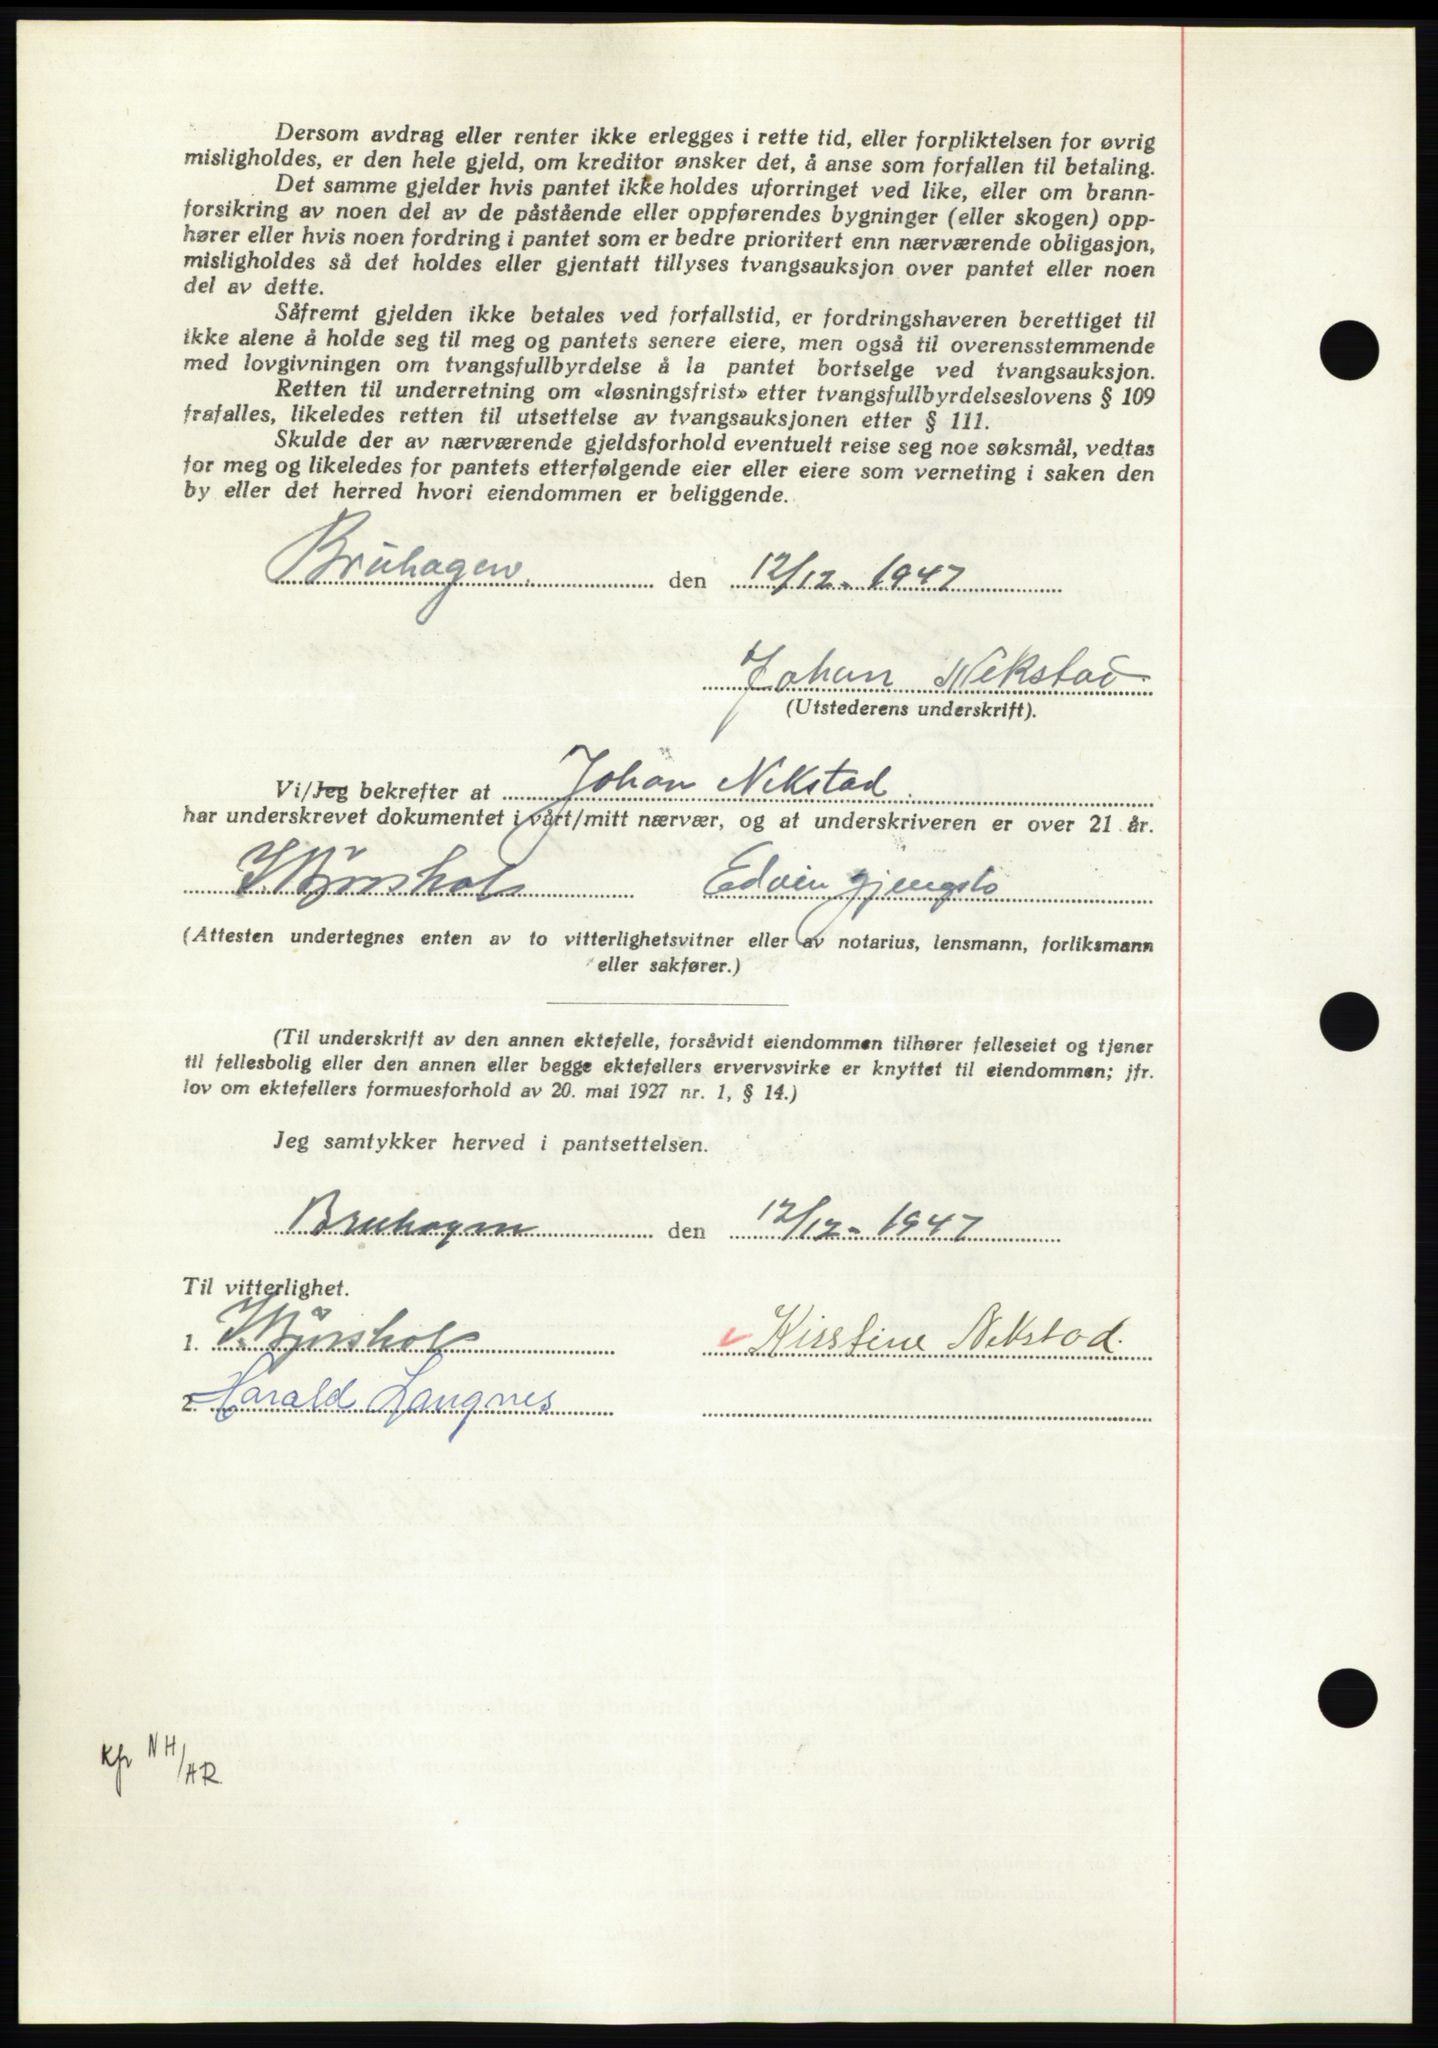 Dersom avdrag eller renter ikke erlegges i rette tid, eller forpliktelsen for øvrig
misligholdes, er den hele gjeld, om kreditor ønsker det, å anse som forfallen til betaling.
Det samme gjelder hvis pantet ikke holdes uforringet ved like, eller om brann-
forsikring av noen del av de påstående eller oppførendes bygninger (eller skogen) opp-
hører eller hvis noen fordring i pantet som er bedre prioritert enn nærværende obligasjon,
misligholdes så det holdes eller gjentatt tillyses tvangsauksjon over pantet eller noen
del av dette.
Såfremt gjelden ikke betales ved forfallstid, er fordringshaveren berettiget til
ikke alene å holde seg til meg og pantets senere eiere, men også til overensstemmende
med lovgivningen om tvangsfullbyrdelse å la pantet bortselge ved tvangsauksjon.
Retten til underretning om «løsningsfrist» etter tvangsfullbyrdelseslovens § 109
frafalles, likeledes retten til utsettelse av tvangsauksjonen etter § 111.
Skulde der av nærværende gjeldsforhold eventuelt reise seg noe søksmål, vedtas
for meg og likeledes for pantets etterfølgende eier eller eiere som verneting i saken den
by eller det herred hvori eiendommen er beliggende.
Bruhagen, den 12/12-1947
Johan Nekstad
(Utstederens underskrift).
Vi/Jeg bekrefter at Johan Nekstad
har underskrevet dokumentet i vårt/mitt nærvær, og at underskriveren er over 21 år.
Edvin Gjengstø
(Attesten undertegnes enten av to vitterlighetsvitner eller av notarius, lensmann, forliksmann
eller sakfører.)
(Til underskrift av den annen ektefelle, forsåvidt eiendommen tilhører felleseiet og tjener
til fellesbolig eller den annen eller begge ektefellers ervervsvirke er knyttet til eiendommen; jfr.
lov om ektefellers formuesforhold av 20. mai 1927 nr. 1, § 14.)
Jeg samtykker herved i pantsettelsen.
Bruhagen den 12/12-1947
Til vitterlighet.
1. Kirstine Nekstad.
2. Harald Langnes
Kfr NH/AR